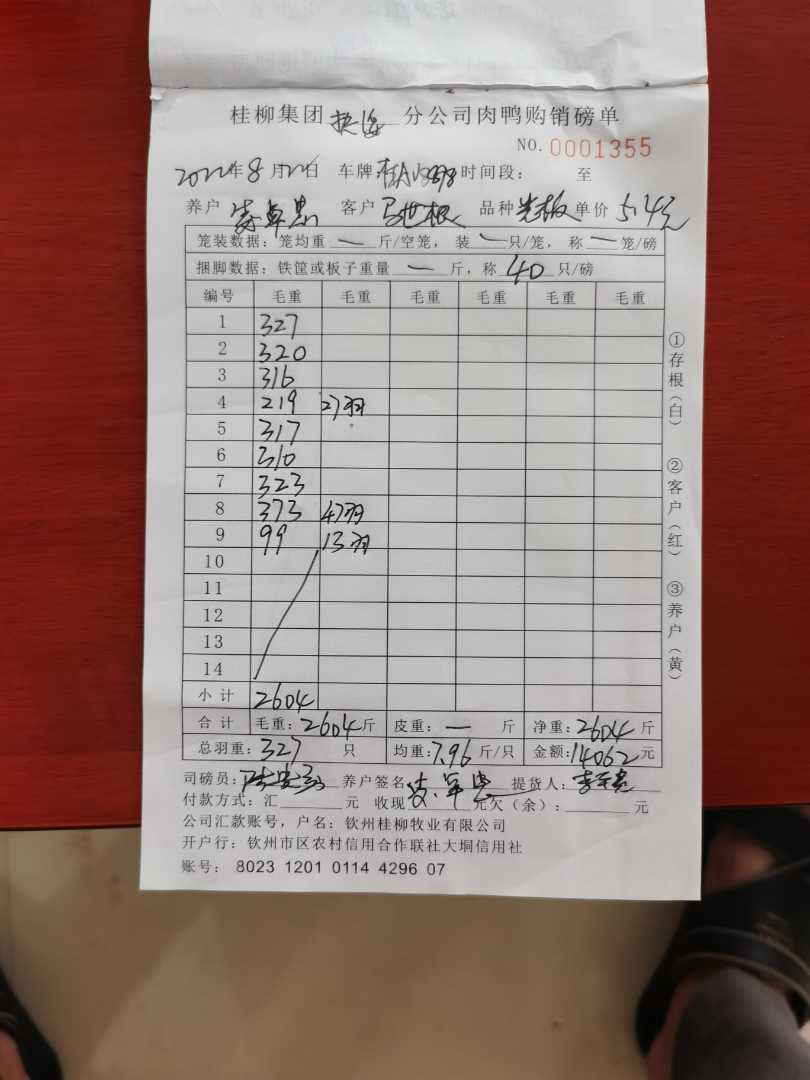 桂柳集团 分公司肉鸭购销磅单
NO. 0001355
2022年8月 日 车牌: 时间段: 至
养户 客户 马世根 品种 光板 单价 5.4元
笼装数据: 笼均重 — 斤/空笼, 装 — 只/笼, 称 — 笼/磅
捆脚数据: 铁筐或板子重量 — 斤, 称 40 只/磅
编号 毛重 毛重 毛重 毛重 毛重 毛重
1 327
2 320
3 316
4 219 27羽
5 317
6 310
7 323
8 373 47羽
9 99 13羽
10
11
12
13
14
小计 2604
合计 毛重: 2604斤 皮重: — 斤 净重: 2604 斤
总羽重: 327 只 均重: 7.96 斤/只 金额: 14062 元
司磅员: 养户签名 提货人:
付款方式: 汇 元 收现 元欠(余): 元
公司汇款账号, 户名: 钦州桂柳牧业有限公司
开户行: 钦州市区农村信用合作联社大垌信用社
账号: 8023 1201 0114 4296 07
①存根(白)
②客户(红)
③养户(黄)